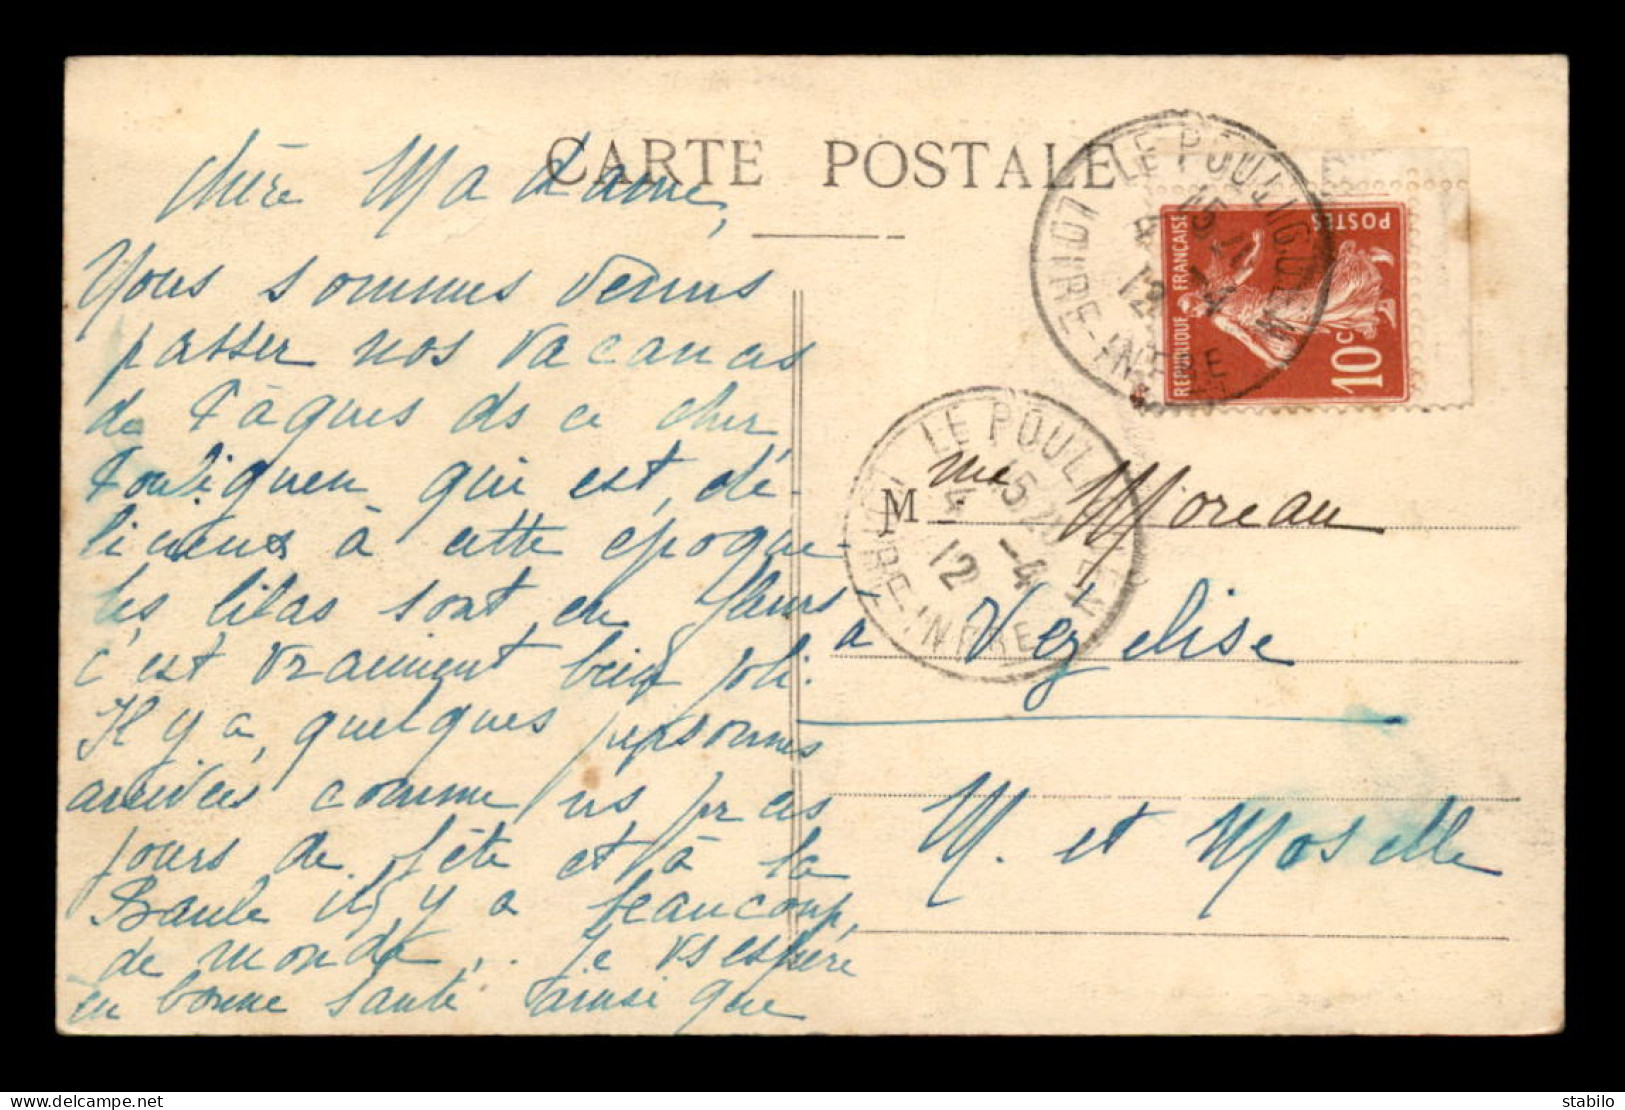 CARTE POSTALE
Chère Madame,
Nous sommes venus
passer nos vacances
de Pâques ds ce cher
Pouliguen qui est dé-
licieux à cette époque
les lilas sont en fleurs
c'est vraiment bien joli.
Il y a quelques personnes
arrivées comme ns pr ces
jours de fête et à la
Baule il y a beaucoup
de monde. Je vs espère
en bonne santé ainsi que
LE POULIGUEN
15
4 -4
12
LOIRE-INFRE
REPUBLIQUE FRANCAISE
POSTES
10c
LE POULIGUEN
15
4 -4
12
LOIRE-INFRE
Mme Moreau
à Vézelise
M. et Moselle
delcampe.net
stabilo